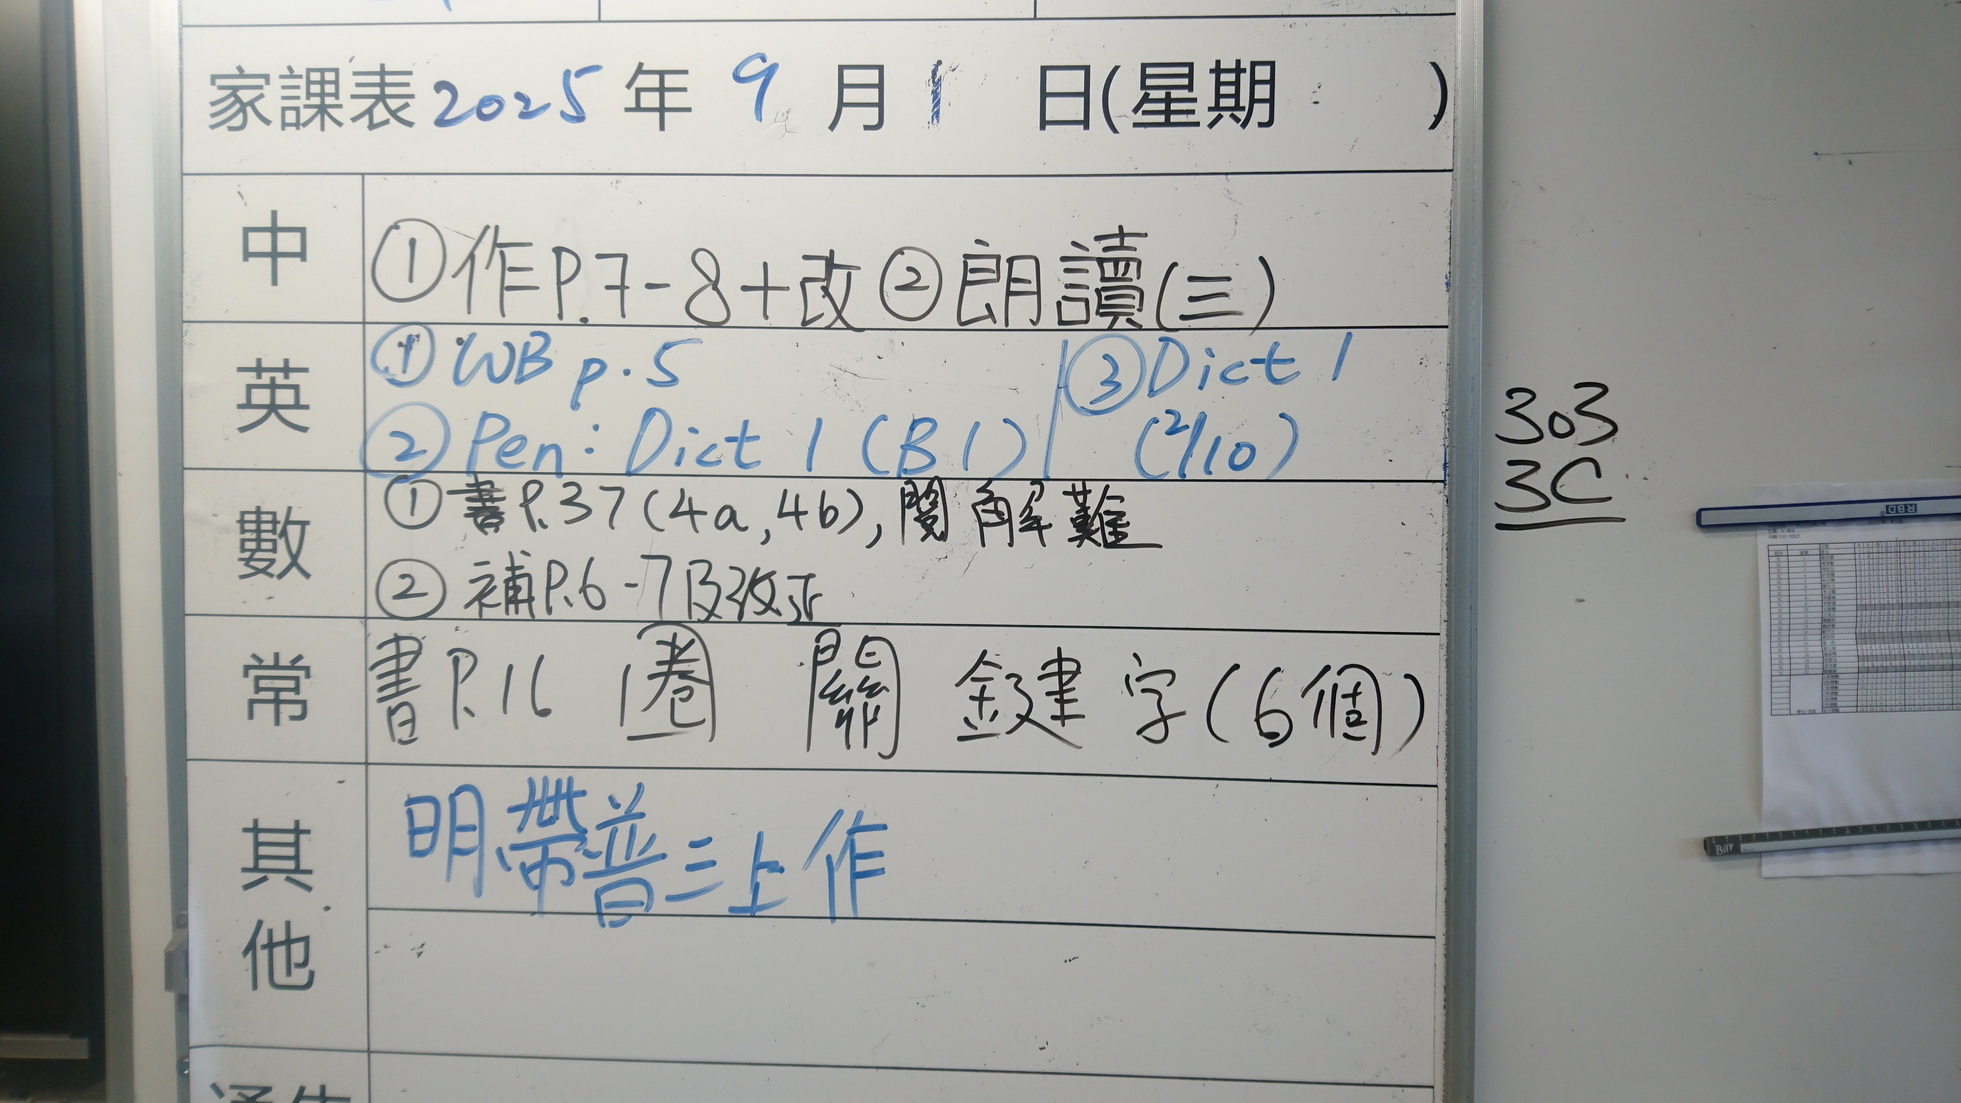 家課表2025年9月1日(星期 )
中 ①作P.7-8+改②朗讀(三)
英 ①WB p.5 ③Dict 1
②Pen: Dict 1 (B1) (2/10)
數 ①書P.37(4a,4b),閱解難
②補P.6-7及改正
常 書P.16 圈 關 鍵 字(6個)
其他 明帶普三上作
303
3C
RBD
Bay